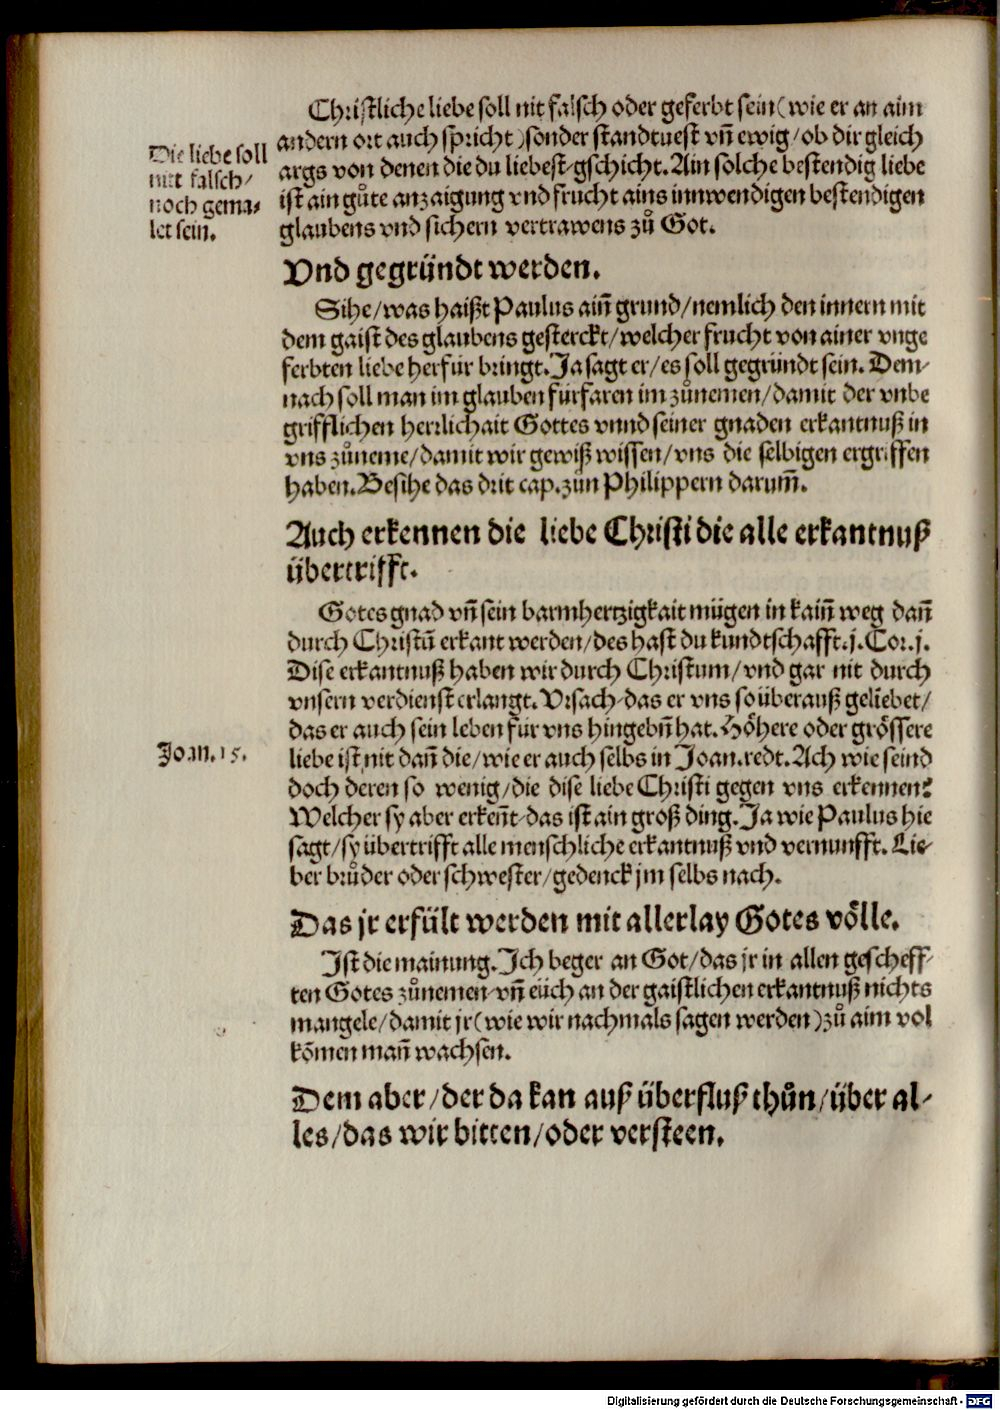 Christliche liebe soll nit falsch oder geferbt sein (wie er an aim
andern ort auch spricht) sonder standtuest vn̄ ewig / ob dir gleich
args von denen die du liebest / gschicht. Ain solche bestendig liebe
ist ain gůte anzaigung vnd frucht ains innwendigen bestendigen
glaubens vnd sichern vertrawens zů Got.
Die liebe soll
nitt falsch /
noch gema⸗
let sein.
Vnd gegründt werden.
Sihe / was haißt Paulus ain̄ grund / nemlich den innern mit
dem gaist des glaubens gesterckt / welcher frucht von ainer vnge
ferbten liebe herfür bringt. Ja sagt er / es soll gegründt sein. Dem⸗
nach soll man im glauben fürfaren im zůnemen / damit der vnbe
grifflichen herrlichait Gottes vnnd seiner gnaden erkantnuß in
vns zůneme / damit wir gewiß wissen / vns die selbigen ergriffen
haben. Besihe das drit cap. zůn Philippern darum̄.
Auch erkennen die liebe Christi die alle erkantnuß
übertrifft.
Gotes gnad vn̄ sein barmhertzigkait mügen in kain̄ weg dan̄
durch Christū erkant werden / des hast du kundtschafft. j. Cor. j.
Dise erkantnuß haben wir durch Christum / vnd gar nit durch
vnsern verdienst erlangt. Vrsach / das er vns so überauß geliebet /
das er auch sein leben für vns hingebn̄ hat. Höhere oder grössere
liebe ist nit dan̄ die / wie er auch selbs in Joan. redt. Ach wie seind
doch deren so wenig / die dise liebe Christi gegen vns erkennen?
Welcher sy aber erken̄t / das ist ain groß ding. Ja wie Paulus hie
sagt / sy übertrifft alle menschliche erkantnuß vnd vernunfft. Lie⸗
ber brůder oder schwester / gedenck jm selbs nach.
Joan. 15.
Das jr erfült werden mit allerlay Gotes völle.
Ist die mainung. Ich beger an Got / das jr in allen gescheff⸗
ten Gotes zůnemen / vn̄ eüch an der gaistlichen erkantnuß nichts
mangele / damit jr (wie wir nachmals sagen werden) zů aim vol
kōmen man̄ wachsen.
Dem aber / der da kan auß überfluß thůn / über al⸗
les / das wir bitten / oder versteen.
Digitalisierung gefördert durch die Deutsche Forschungsgemeinschaft - DFG